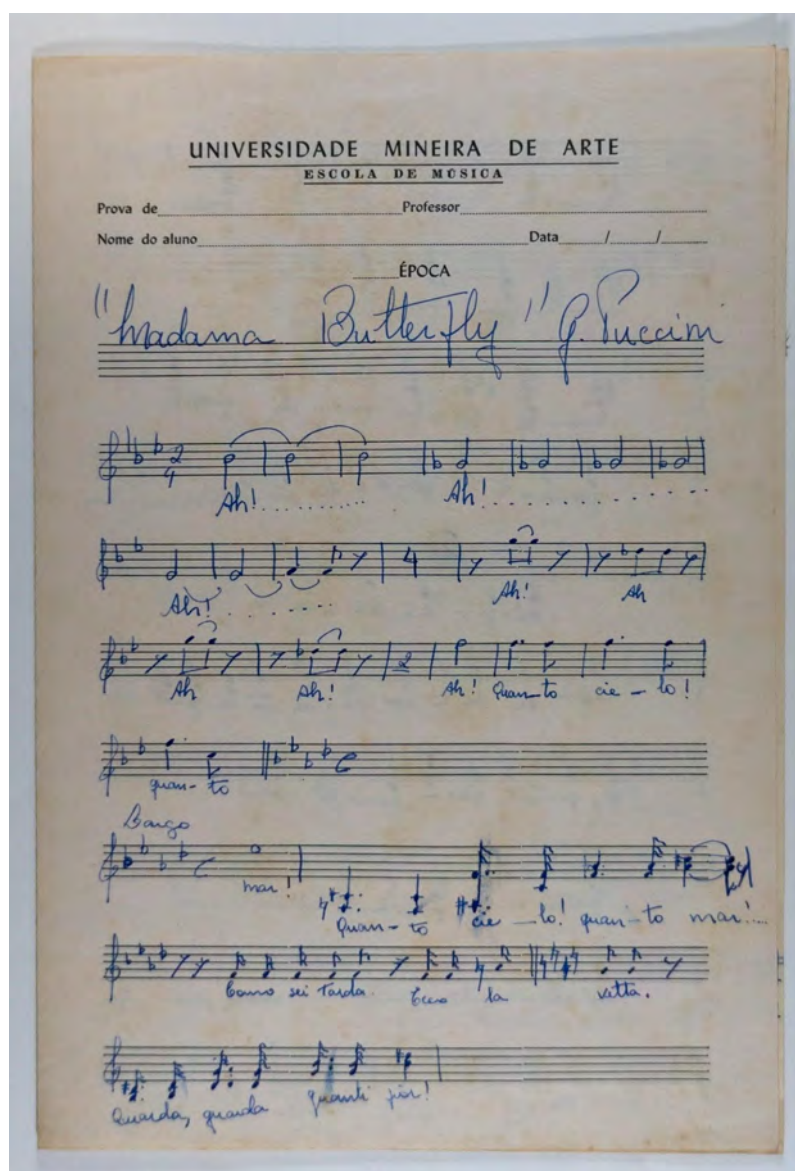 UNIVERSIDADE MINEIRA DE ARTE
ESCOLA DE MÚSICA
Prova de Professor
Nome do aluno Data / /
ÉPOCA
"Madama Butterfly" G. Puccini
2
4
Ah!........... Ah!...............
4
Ah!......... Ah! Ah
2
Ah Ah! Ah! Quan-to cie-lo!
quan-to
mar! Quan-to cie-lo! quan-to mar!...
sei tarda. la vetta.
guarda quanti fior!